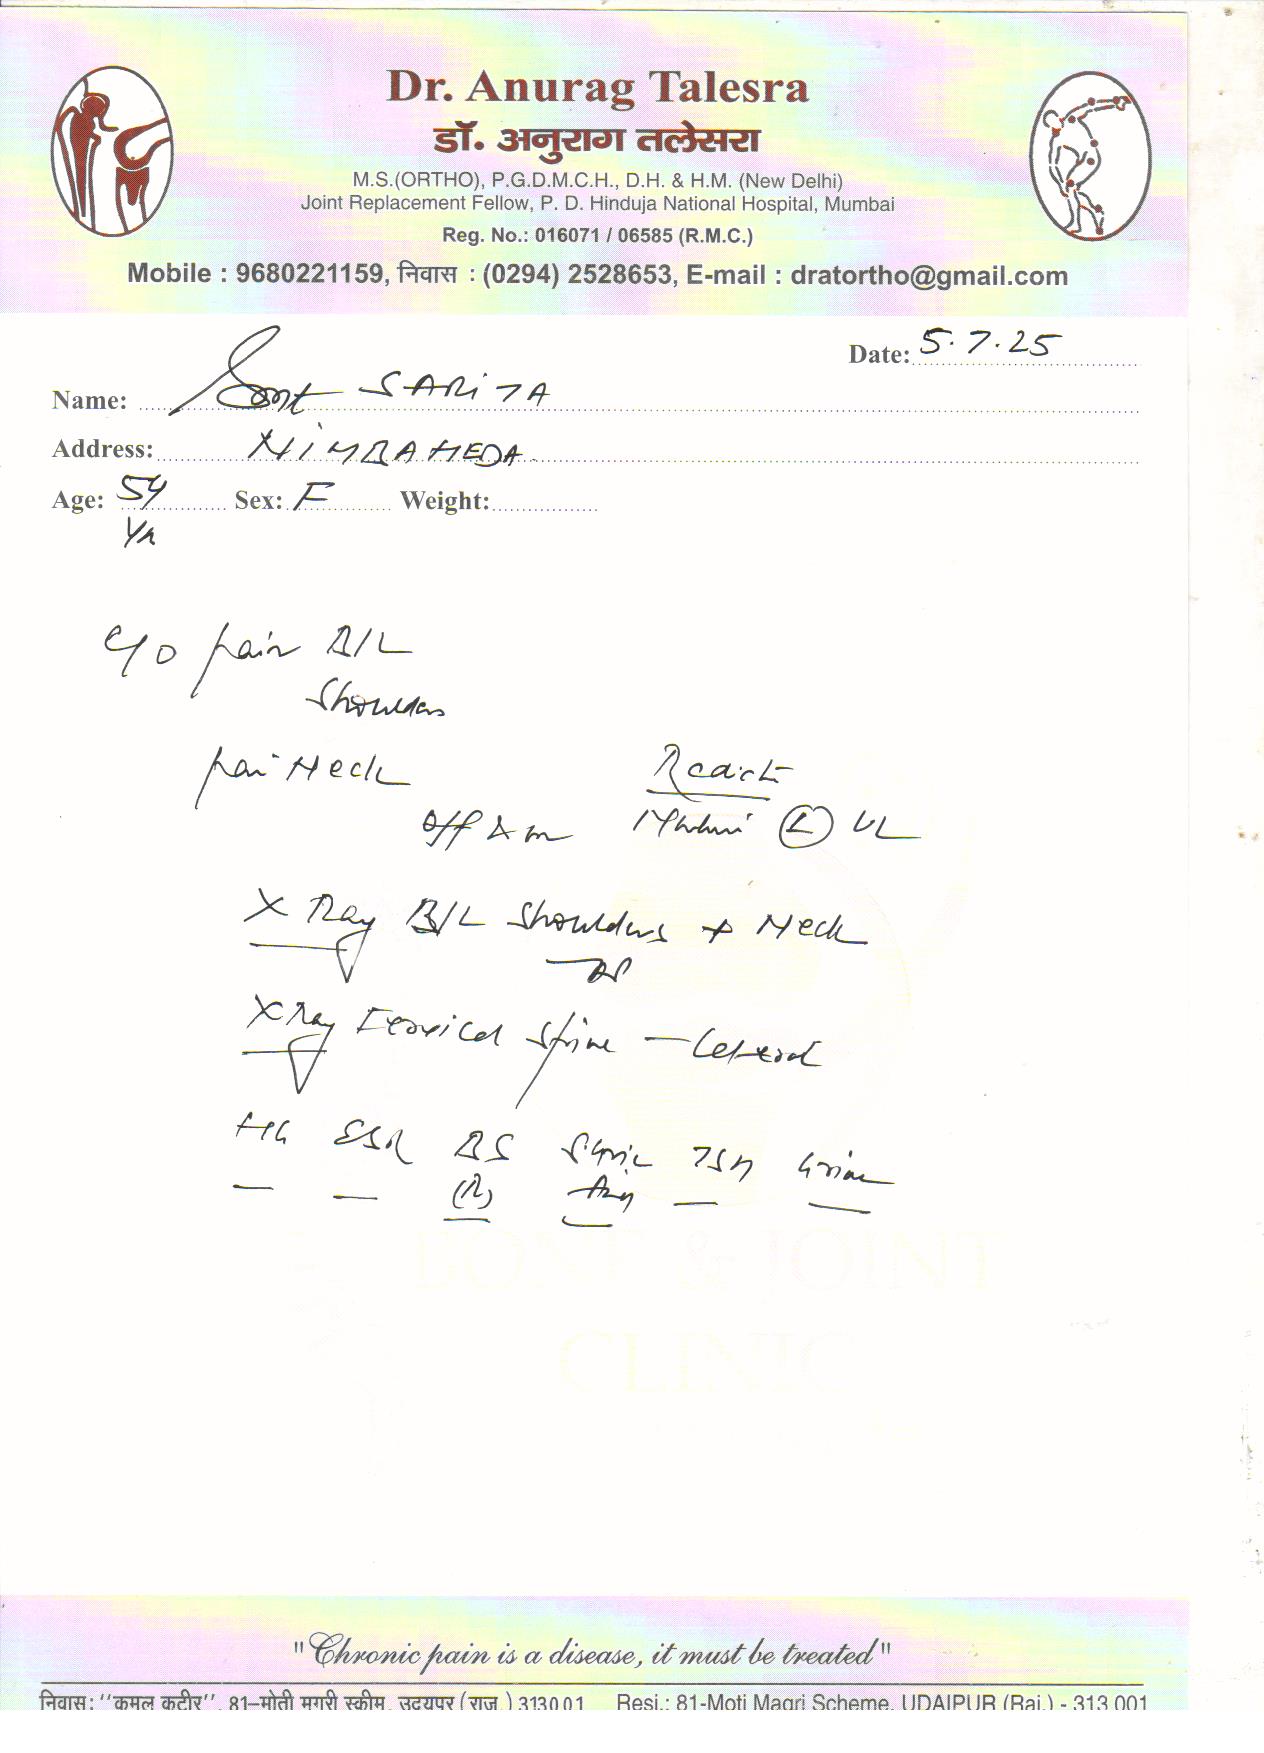 Dr. Anurag Talesra
डॉ. अनुराग तलेसरा
M.S.(ORTHO), P.G.D.M.C.H., D.H. & H.M. (New Delhi)
Joint Replacement Fellow, P. D. Hinduja National Hospital, Mumbai
Reg. No.: 016071 / 06585 (R.M.C.)
Mobile : 9680221159, निवास : (0294) 2528653, E-mail : dratortho@gmail.com
Date: 5.7.25
Name: Smt SARITA
Address: NIMBAHEDA
Age: 54 Sex: F Weight:
Yr
C/O pain B/L
Shoulders
pain Neck
off & on (L) UL
X Ray B/L Shoulders + Neck
AP
X Ray Cervical Spine - Lateral
Hb ESR BS S. Uric TSH Urine
(R) Acid
BONE & JOINT
CLINIC
"Chronic pain is a disease, it must be treated"
निवास: ''कमल कुटीर'', 81-मोती मगरी स्कीम, उदयपुर (राज.) 313001 Resi.: 81-Moti Magri Scheme, UDAIPUR (Raj.) - 313 001